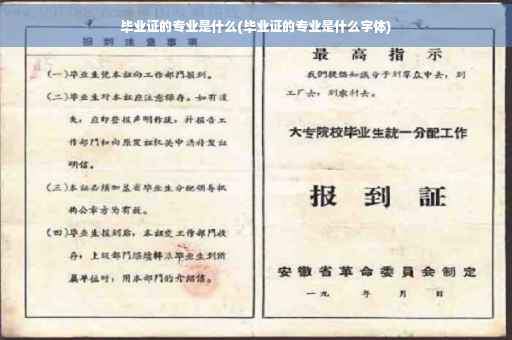 毕业证的专业是什么(毕业证的专业是什么字体)
报到注意事项
(一)毕业生凭本证向工作部门报到。
(二)毕业生对本证应注意保存。如有遗
失，应即登报声明作废，并报告工
作部门和向原发证机关申请补发证
明信。
(三)本证必须加盖省毕业生分配领导机
构公章方为有效。
(四)毕业生报到后，本证交工作部门收
存；上级部门
属单位时，用本部门的介绍信。
最高指示
我们提倡知识分子到群众中去，到
工厂去，到农村去。
大专院校毕业生統一分配工作
报到証
安徽省革命委員会制定
一九 年 月 日